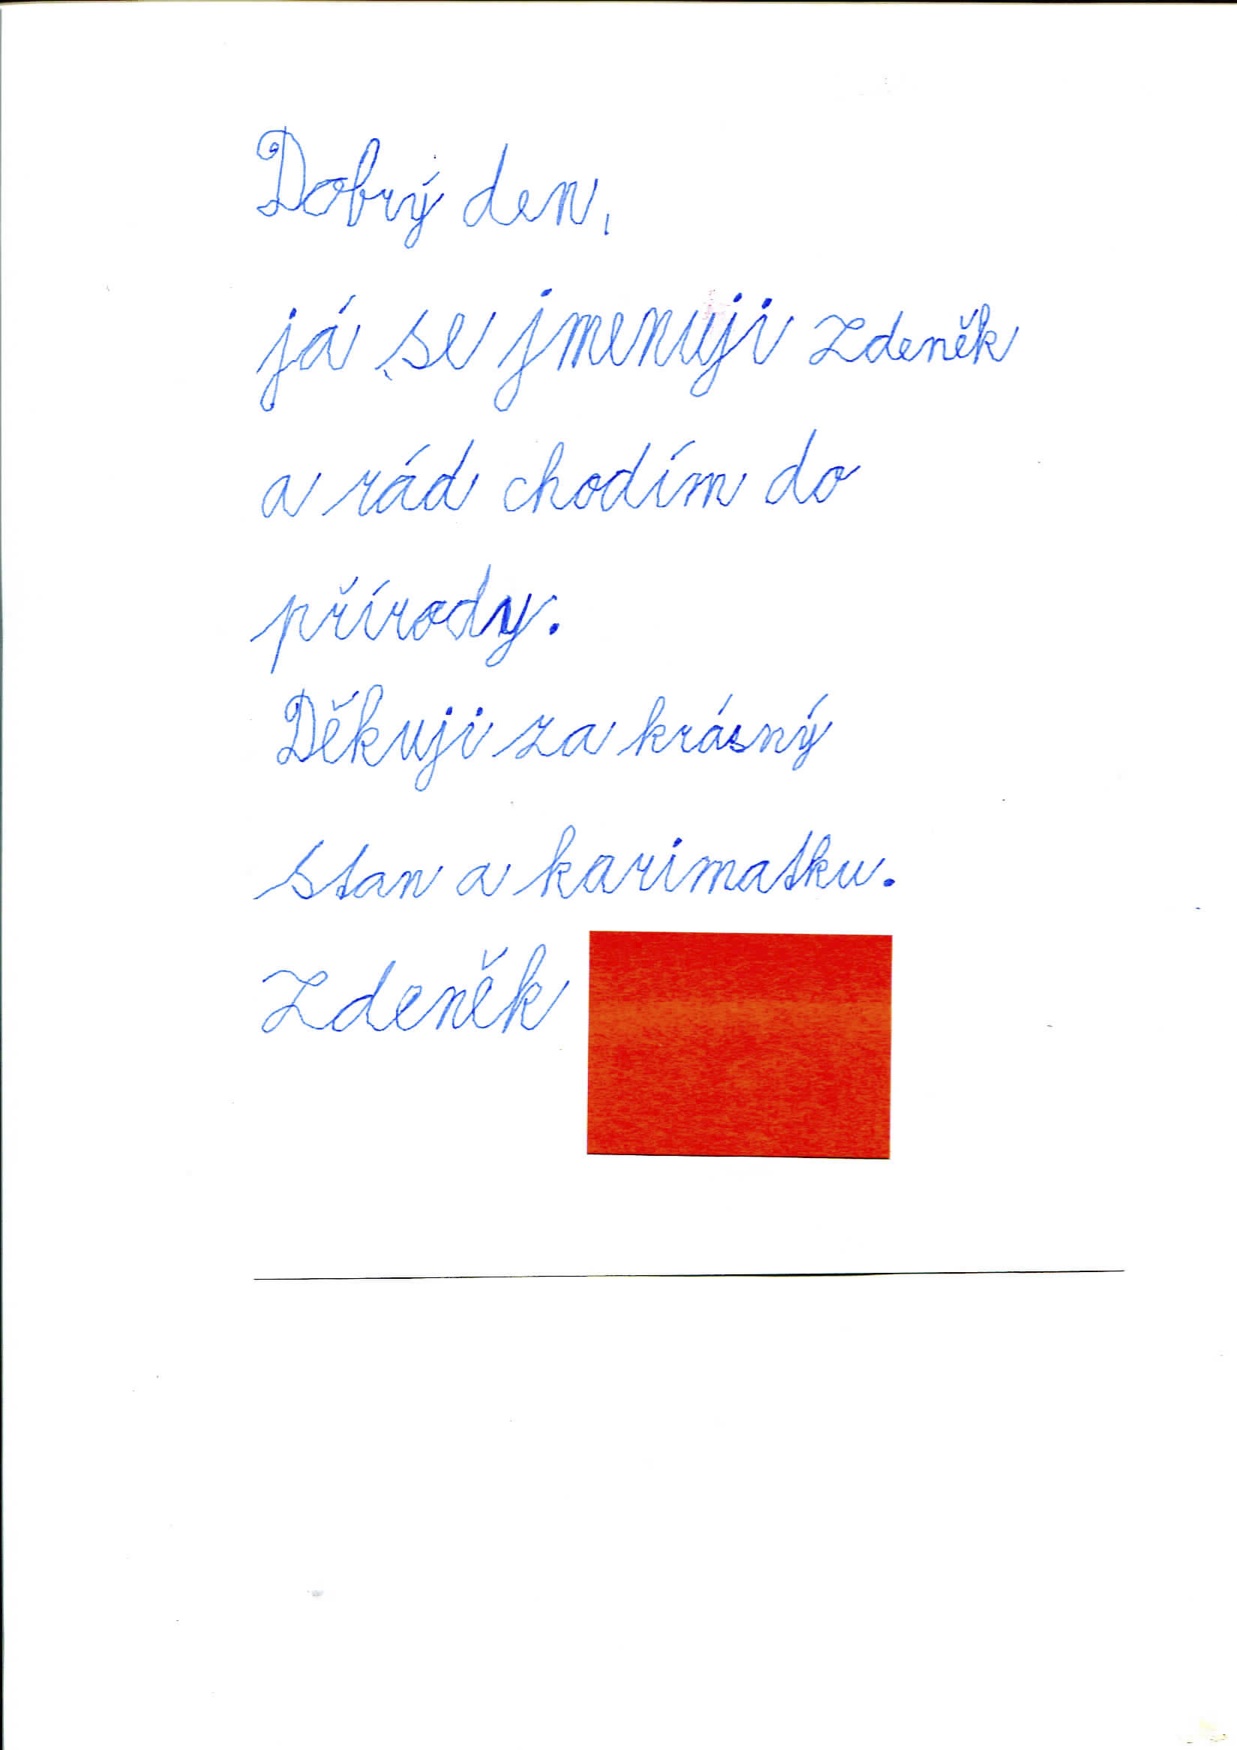 Dobrý den,
já se jmenuji Zdeněk
a rád chodím do
přírody.
Děkuji za krásný
stan a karimatku.
Zdeněk